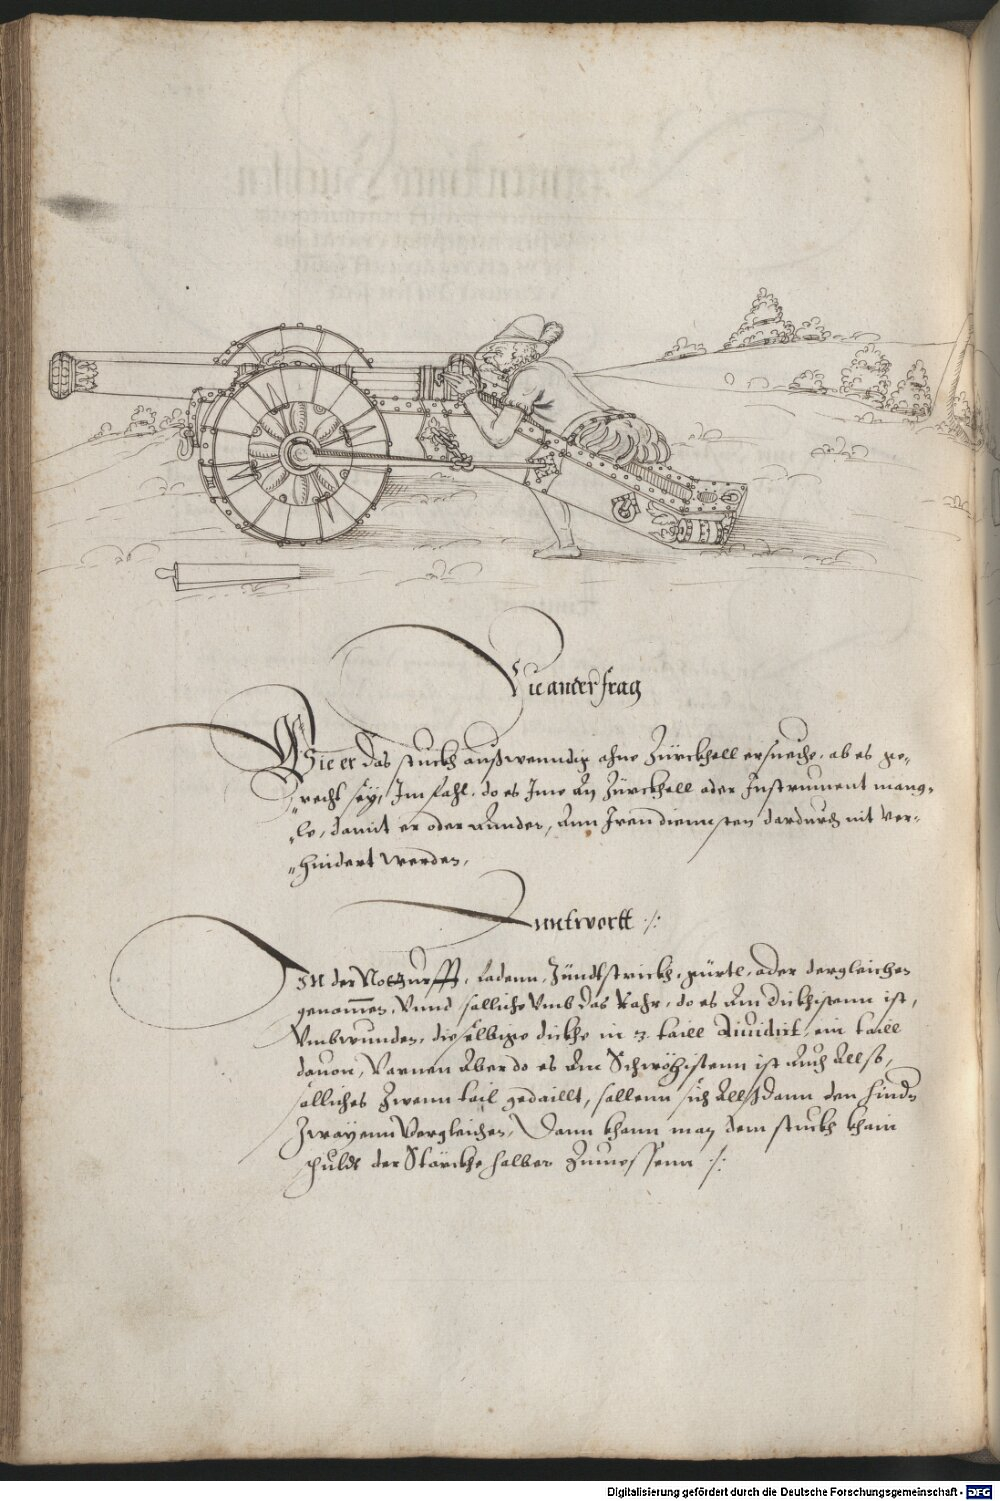 Die ander frag
Wie er das stuckh außwenndig ohne Zürckhell ersueche, ob es ge-
recht sey, Im fahl, do es Ime An Zürckhell oder Instrument mang-
le, damit er oder annder, ann Iren diennsten dardurch nit ver-
hindert werden,
Anntwortt
In der Notturfft, fadenn, Zündtstrickh, gürtl, oder dergleichen
genommen, Vnnd solliche vmb das Rohr, do es Am dickhistenn ist,
Vmbwunden, dieselbige dickhe in 3. taill diuidirt, ein taill
dauon, Vornen Aber do es Am Schwöchistenn ist Auch Allso,
solliches Zwenn tail gedaillt, sollenn sich Allßdann den hindn
Zwayenn Vergleichen, Dann khann man dem stuckh khain
schuldt der Störckhe halber Zumessenn
Digitalisierung gefördert durch die Deutsche Forschungsgemeinschaft - DFG